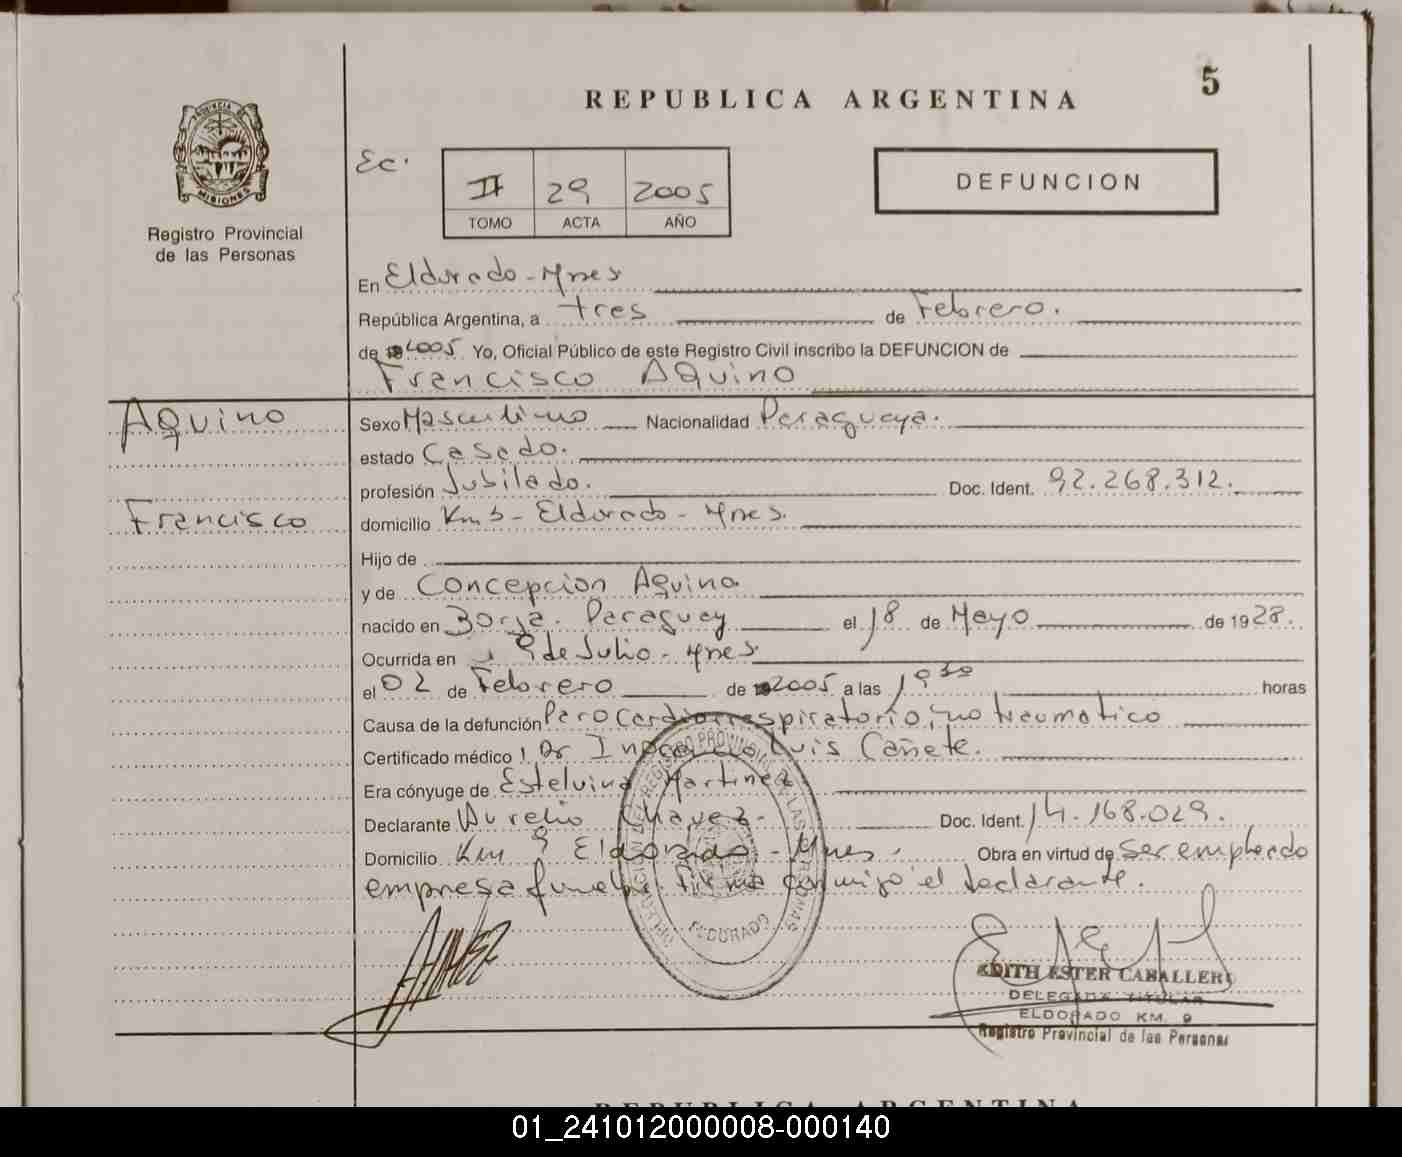 5
REPUBLICA ARGENTINA
PROVINCIA DE
MISIONES
Registro Provincial
de las Personas
Ec.
II 29 2005
TOMO ACTA AÑO
DEFUNCION
En Eldorado - Mnes
República Argentina, a tres de Febrero.
de 2005 Yo, Oficial Público de este Registro Civil inscribo la DEFUNCION de
Francisco Aquino
Aquino
Francisco
Sexo Masculino Nacionalidad Paraguaya.
estado Casado.
profesión Jubilado. Doc. Ident. 92.268.312.
domicilio Km - Eldorado - Mnes.
Hijo de
y de Concepcion Aquino
nacido en Borja. Paraguay el 18 de Mayo de 1928.
Ocurrida en 9 de Julio - Mnes
el 02 de Febrero de 2005 a las 19 30 horas
Causa de la defunción Paro Cardiorrespiratorio, no traumatico
Certificado médico Dr Luis Cañete.
Era cónyuge de Estelvina Martinez
Declarante Aurelio Chavez - Doc. Ident. 14.168.029.
Domicilio Km 9 Eldorado - Mnes. Obra en virtud de ser empleado
empresa funebre. Firma conmigo el declarante.
DELEGACION DEL REGISTRO PROVINCIAL DE LAS PERSONAS
ELDORADO
EDITH ESTER CABALLERO
DELEGADA TITULAR
ELDORADO KM. 9
Registro Provincial de las Personas
REPUBLICA ARGENTINA
01_241012000008-000140